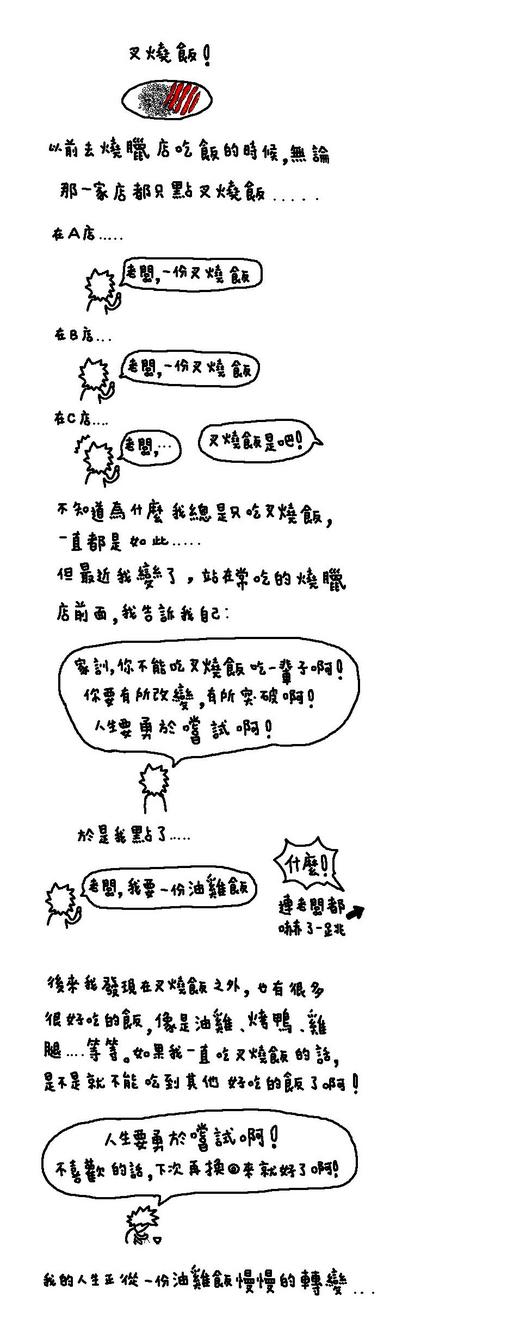 叉燒飯!
以前去燒臘店吃飯的時候,無論
那一家店都只點叉燒飯.....
在A店.....
老闆,一份叉燒飯
在B店...
老闆,一份叉燒飯
在C店....
老闆,...
叉燒飯是吧!
不知道為什麼我總是只吃叉燒飯,
一直都是如此.....
但最近我變了,站在常吃的燒臘
店前面,我告訴我自己:
家訓,你不能吃叉燒飯吃一輩子啊!
你要有所改變,有所突破啊!
人生要勇於嚐試啊!
於是我點了.....
老闆,我要一份油雞飯
什麼!
連老闆都
嚇了一跳
後來我發現在叉燒飯之外,也有很多
很好吃的飯,像是油雞、烤鴨、雞
腿....等等。如果我一直吃叉燒飯的話,
是不是就不能吃到其他好吃的飯了啊!
人生要勇於嚐試啊!
不喜歡的話,下次再換回來就好了啊!
我的人生正從一份油雞飯慢慢的轉變...